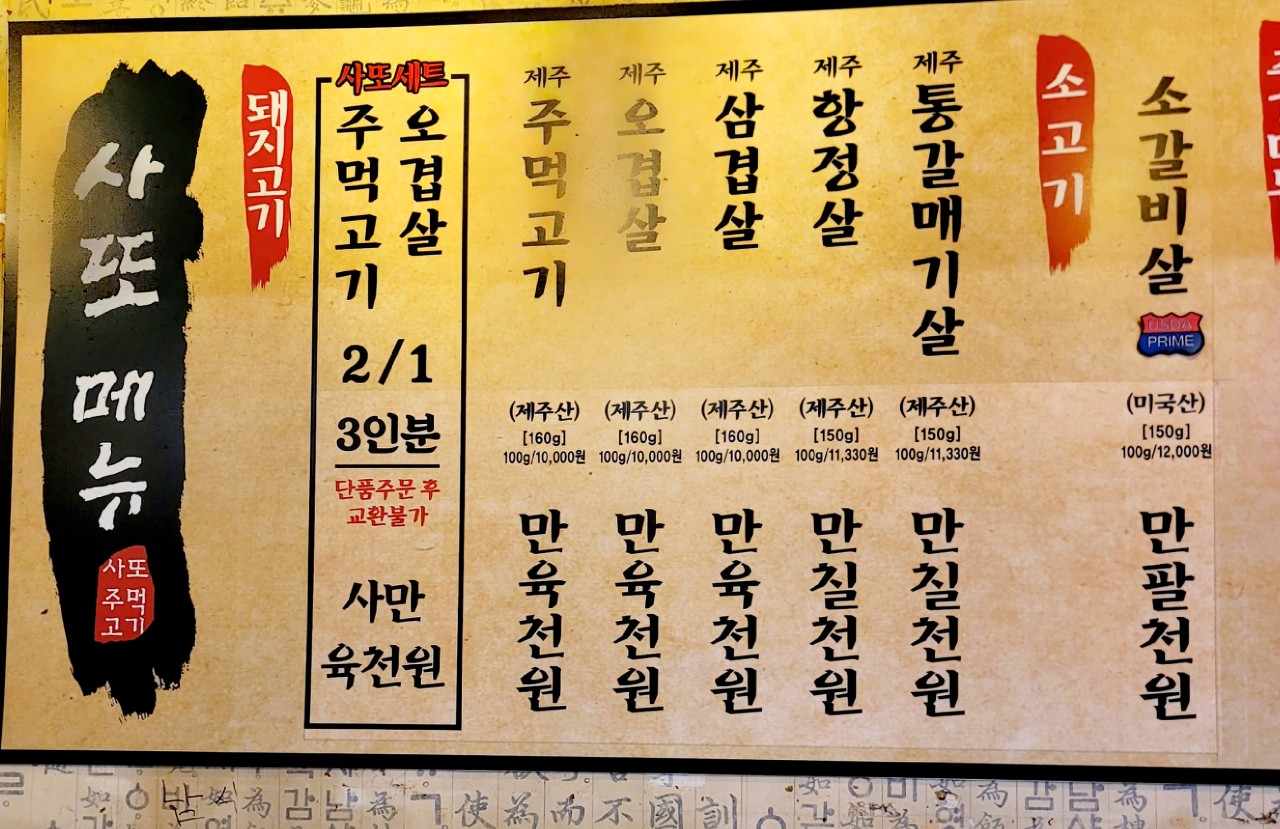 사또 메뉴
사또
주먹
고기
돼지고기
사또세트
주먹고기
오겹살
2/1
3인분
단품주문 후
교환불가
사만
육천원
제주
주먹고기
(제주산)
[160g]
100g/10,000원
만육천원
제주
오겹살
(제주산)
[160g]
100g/10,000원
만육천원
제주
삼겹살
(제주산)
[160g]
100g/10,000원
만육천원
제주
항정살
(제주산)
[150g]
100g/11,330원
만칠천원
제주
통갈매기살
(제주산)
[150g]
100g/11,330원
만칠천원
소고기
소갈비살
USDA
PRIME
(미국산)
[150g]
100g/12,000원
만팔천원
使為而不國訓